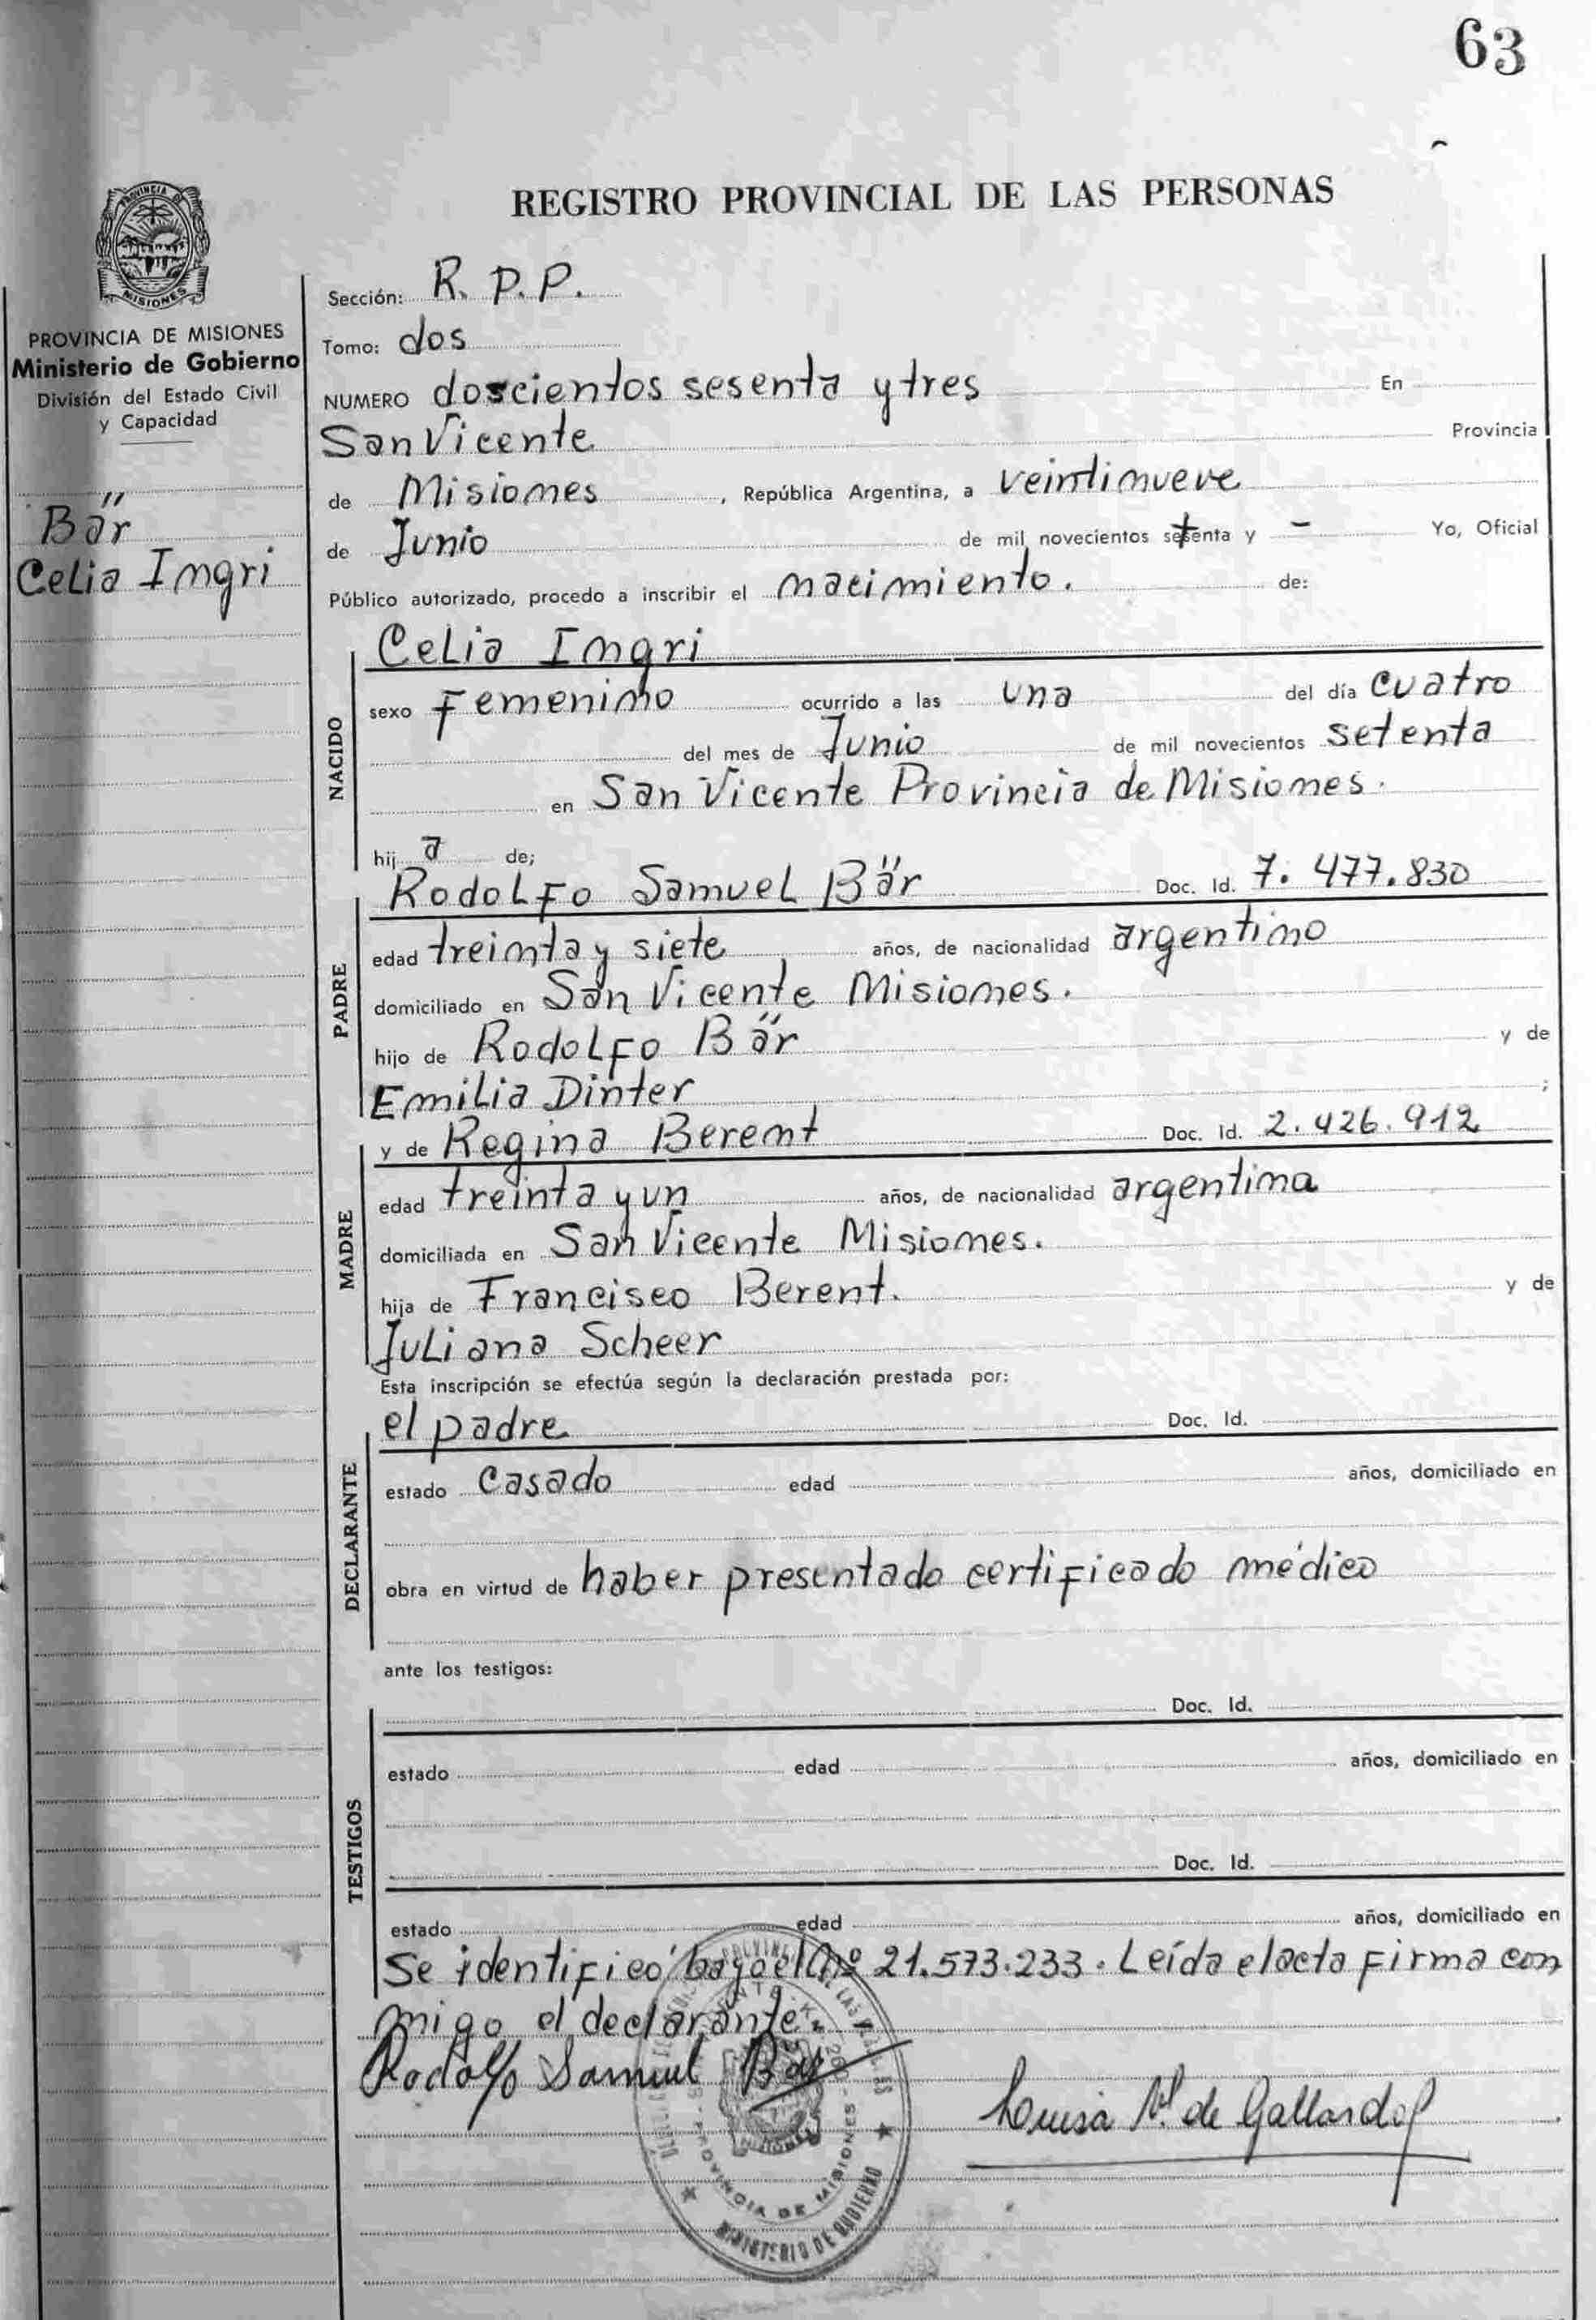 63
REGISTRO PROVINCIAL DE LAS PERSONAS
PROVINCIA DE
MISIONES
PROVINCIA DE MISIONES
Ministerio de Gobierno
División del Estado Civil
y Capacidad
Bär
Celia Ingri
Sección: R. P. P.
Tomo: dos
NUMERO doscientos sesenta y tres En
San Vicente Provincia
de Misiones, República Argentina, a veintinueve
de Junio de mil novecientos setenta y — Yo, Oficial
Público autorizado, procedo a inscribir el nacimiento. de:
NACIDO
Celia Ingri
sexo Femenino ocurrido a las una del día cuatro
del mes de Junio de mil novecientos setenta
en San Vicente Provincia de Misiones.
hij a de;
PADRE
Rodolfo Samuel Bär Doc. Id. 7. 477.830
edad treinta y siete años, de nacionalidad argentino
domiciliado en San Vicente Misiones.
hijo de Rodolfo Bär y de
Emilia Dinter ;
MADRE
y de Regina Berent Doc. Id. 2.426.912
edad treinta y un años, de nacionalidad argentina
domiciliada en San Vicente Misiones.
hija de Francisco Berent. y de
Juliana Scheer
Esta inscripción se efectúa según la declaración prestada por:
DECLARANTE
el padre Doc. Id.
estado Casado edad años, domiciliado en
obra en virtud de haber presentado certificado médico
ante los testigos:
TESTIGOS
Doc. Id.
estado edad años, domiciliado en
Doc. Id.
estado edad años, domiciliado en
Se identificó bajo el Nº 21.573.233. Leída el acta firma con
migo el declarante.
Rodolfo Samuel Bär
Luisa de Gallardo
PROVINCIA DE MISIONES
MINISTERIO DE GOBIERNO